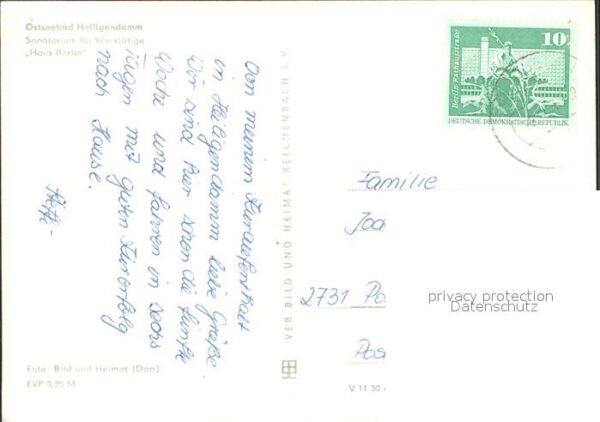 Ostseebad Heiligendamm
Sanatorium für Werktätige
„Haus Berlin“
Von meinem Kuraufenthalt
in Heiligendamm liebe Grüße.
Wir sind hier schon die fünfte
Woche und fahren in sechs
Tagen mit gutem Kurerfolg
nach Hause.
VEB BILD UND HEIMAT REICHENBACH i. V.
10
Berlin, Rathausstraße
DEUTSCHE DEMOKRATISCHE REPUBLIK
Familie
Joa
2731 Po
Pos
privacy protection
Datenschutz
Foto: Bild und Heimat (Dan)
EVP 0,25 M
V 11 50